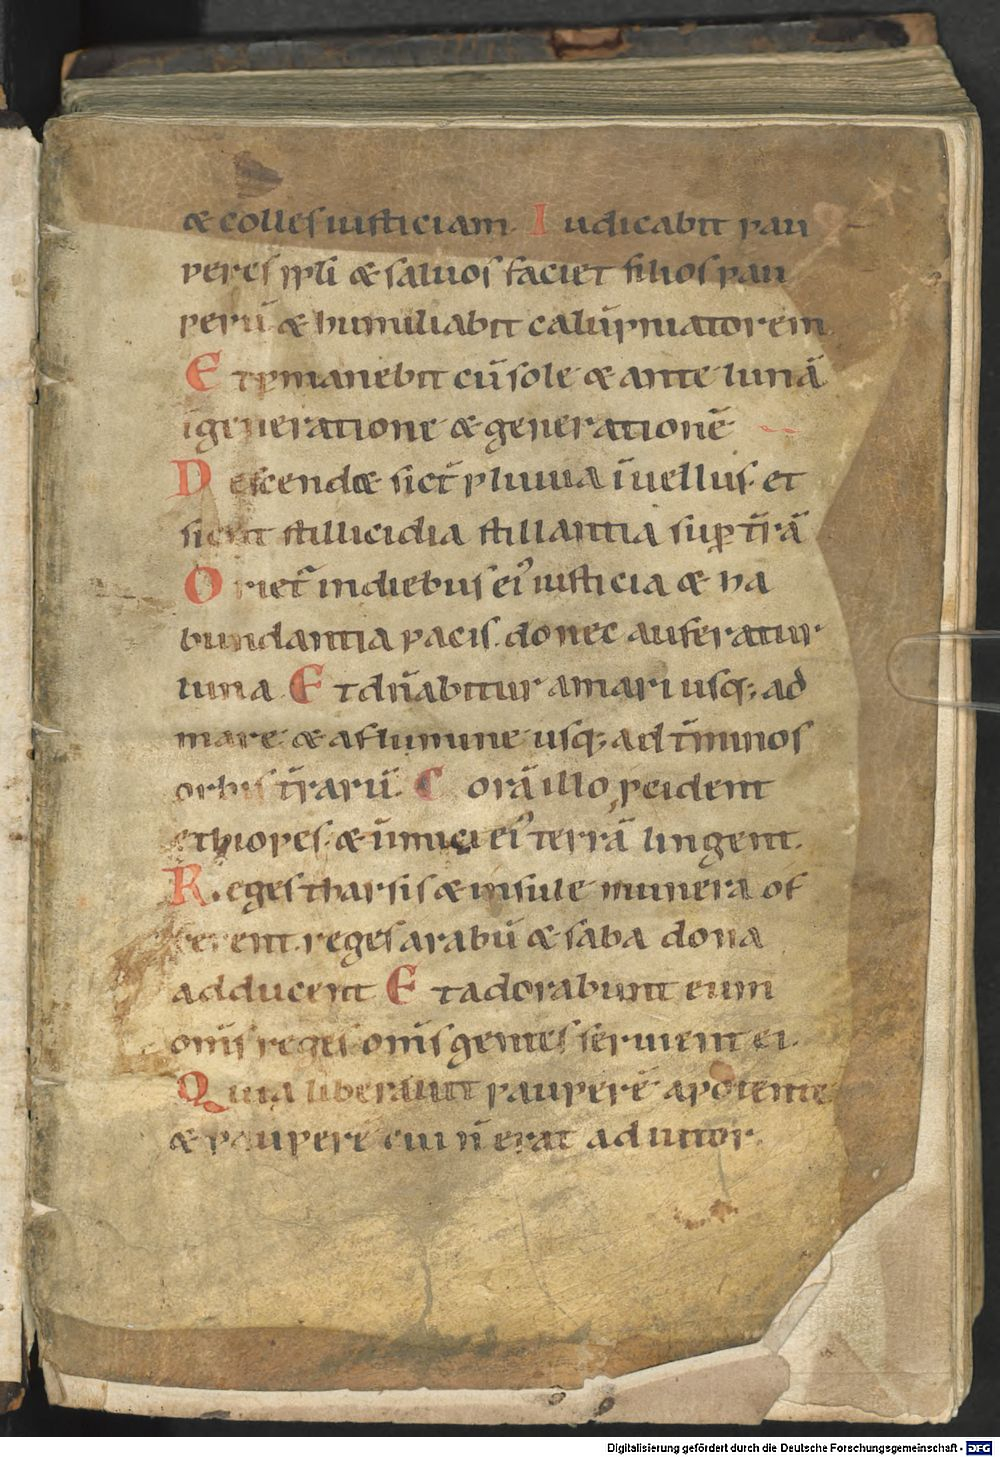 & colles iusticiam. Iudicabit pau
peres ppli & saluos faciet filios pau
perū & humiliabit calūpniatorem
Et pmanebit cū sole & ante lunā
ī generatione & generationē
Descend& sict̄ pluuia ī uellus. et
sicut stillicidia stillantia sup tr̄ā
Oriet᷑ in diebus ei᷒ iusticia & ha
bundantia pacis. donec auferatur
luna. Et dn̄abitur a mari usq; ad
mare & a flumine usq; ad t̄minos
orbis tr̄arū. Corā illo pcident
ethiopes. & inimici ei᷒ terrā lingent.
Reges tharsis & insule munera of
ferent. reges arabū & saba dona
adducent Et adorabunt eum
om̄s reges om̄s gentes seruient ei.
Quia liberauit pauperē a potente
& pauperē cui n̄ erat adiutor.
Digitalisierung gefördert durch die Deutsche Forschungsgemeinschaft - DFG